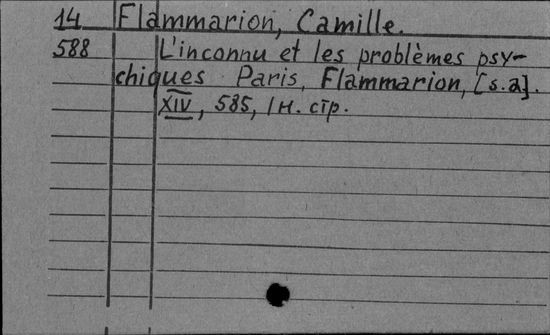 14 Flammarion, Camille.
588 L'inconnu et les problèmes psy-
chiques Paris, Flammarion, [s.a].
XIV, 585, 1 н. стр.